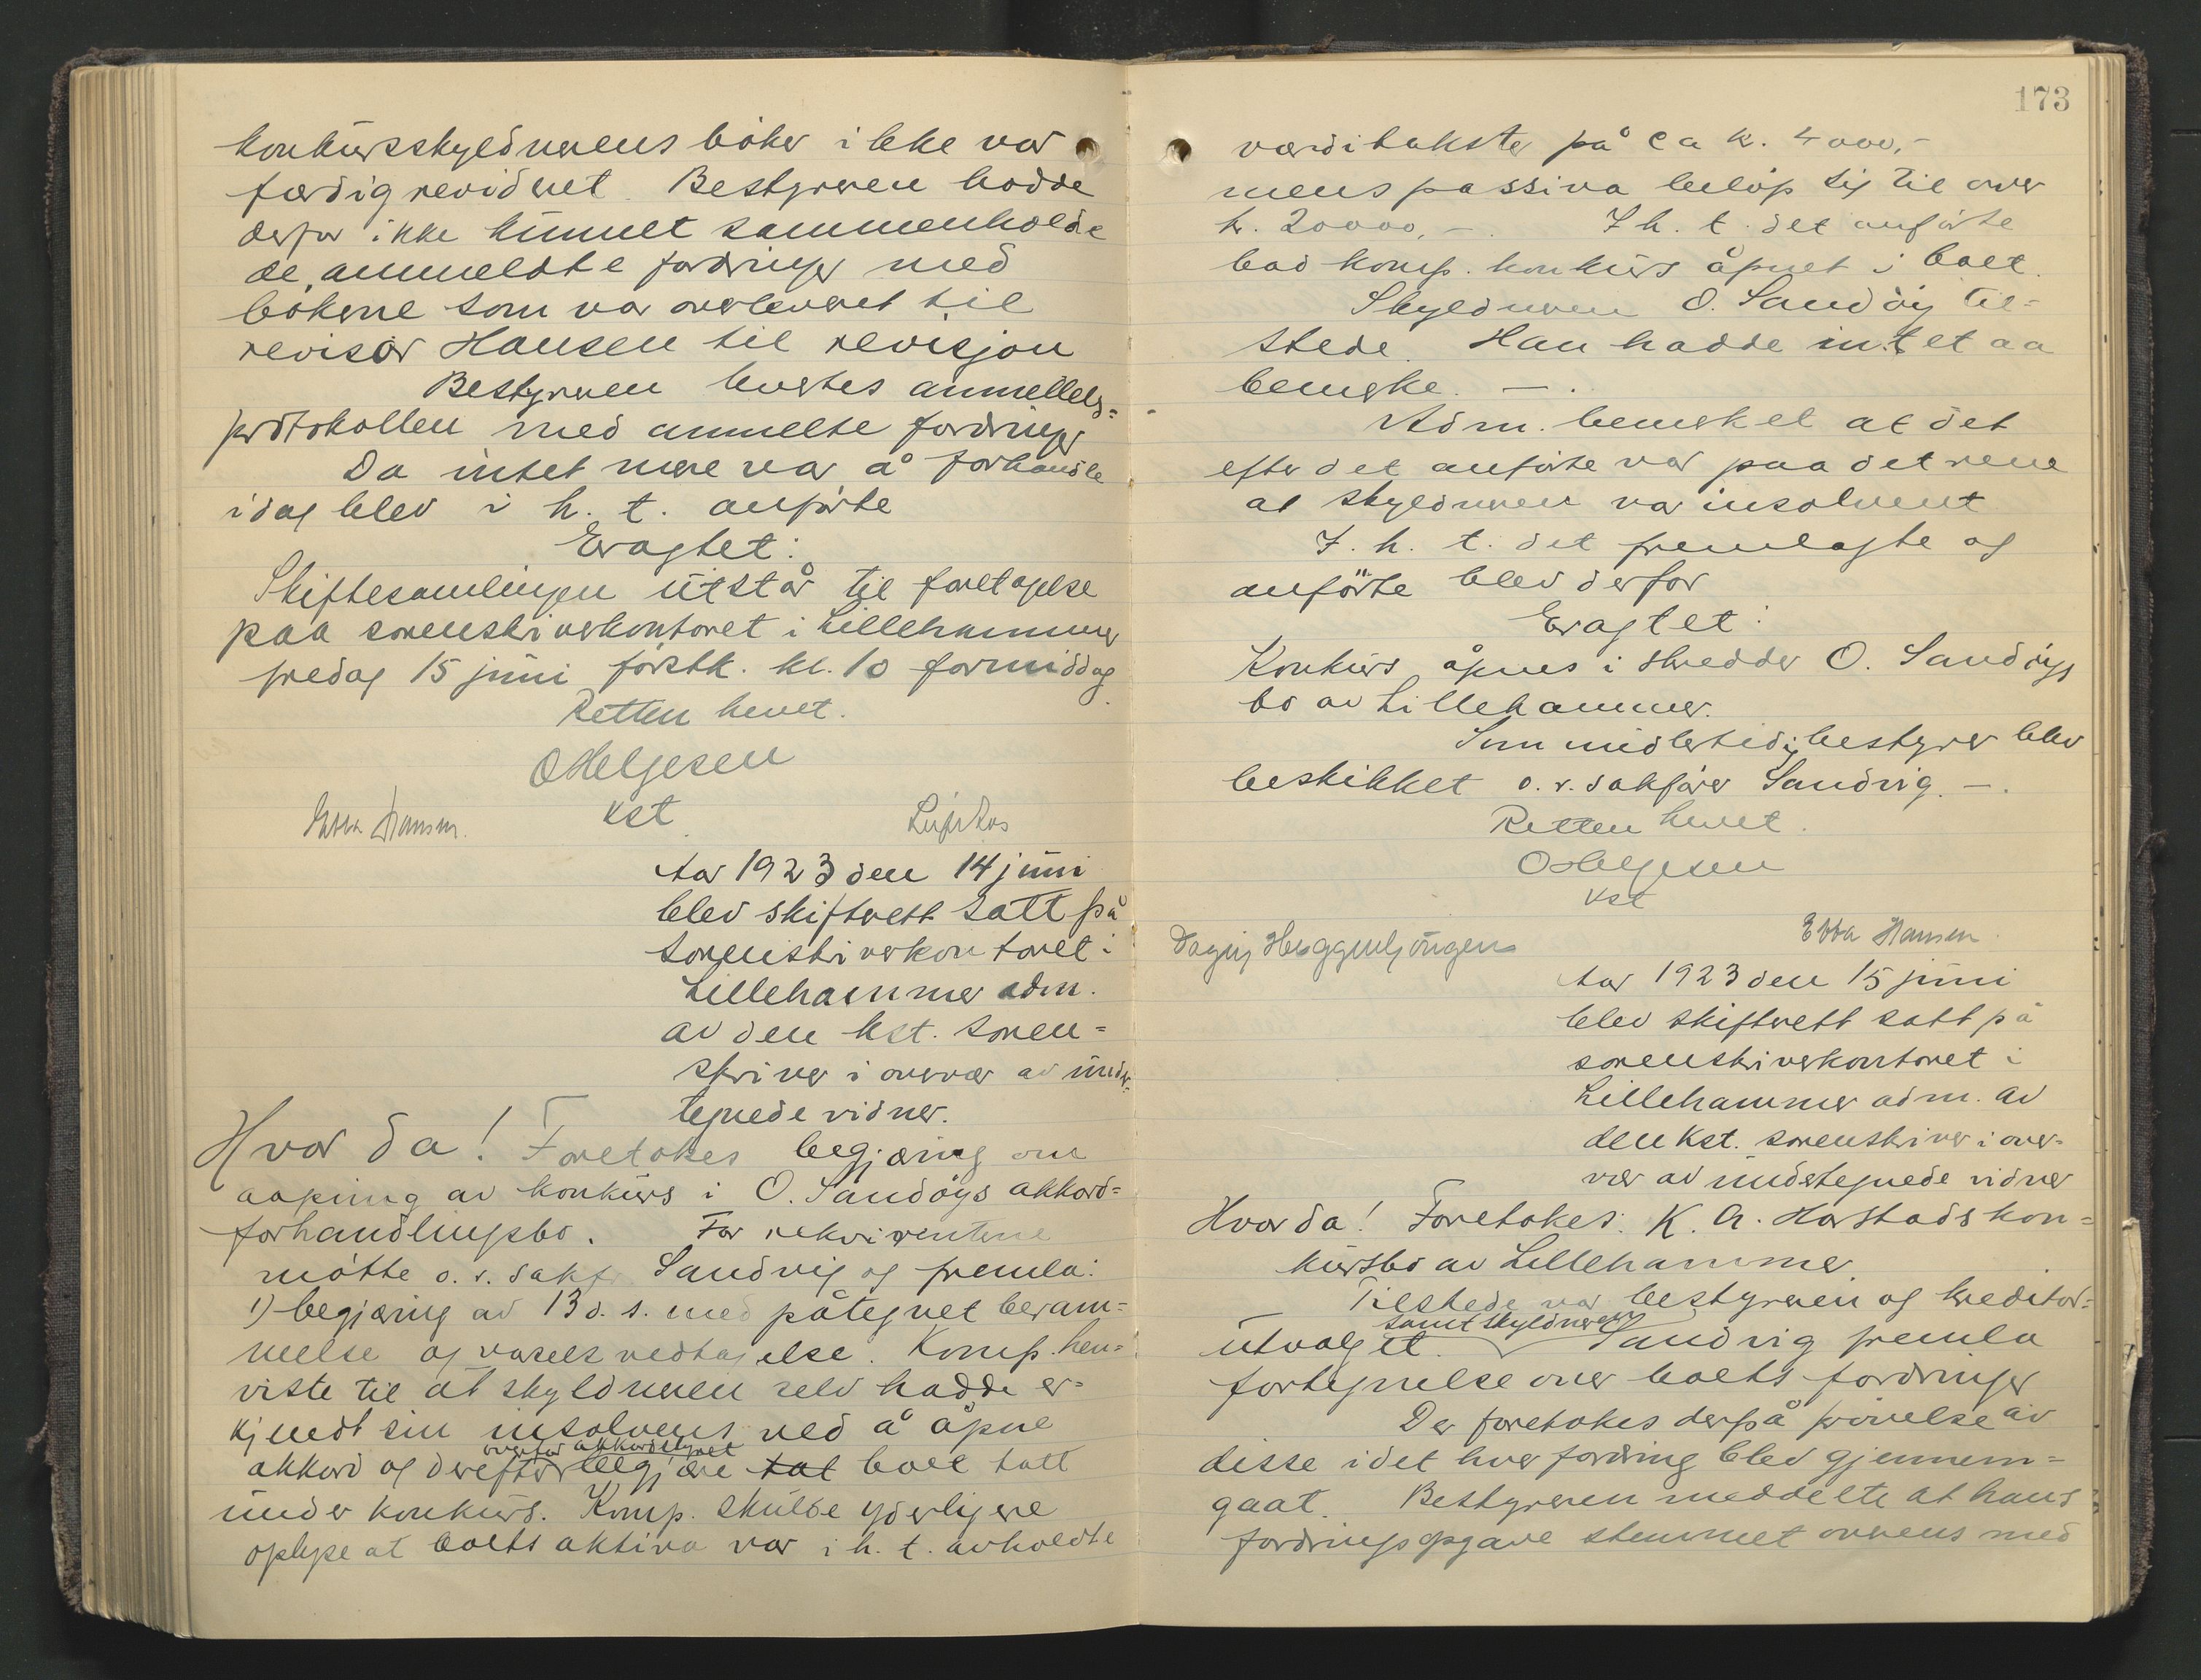 konkursskyldnerens bøker ikke var
færdig revideret. Bestyreren hadde
derfor ikke kunnet sammenholde
de anmeldte fordringer med
bøkene som var overleveret til
revisor Hansen til revisjon
Bestyreren leverte anmeldels=
protokollen med anmeldte fordringer
Da intet mere var å forhandle
idag blev i h. t. anførte
Eragtet:
Skiftesamlingen utstår til foretagelse
paa sorenskriverkontoret i Lillehammer
fredag 15 juni førstk. kl. 10 formiddag.
Retten hevet.
O Helgesen
kst
Ebba Hansen.
Aar 1923 den 14 juni
blev skifterett satt på
sorenskriverkontoret i
Lillehammer adm.
av den kst. soren=
skriver i overvær av under=
tegnede vidner.
Hvor da! Foretokes begjæring om
aapning av konkurs i O. Sandøys akkord=
forhandlingsbo. For rekvirentene
møtte o. r. sakf. Sandvig og fremla:
1) begjæring av 13 d. s. med påtegnet beram=
melse og varsels vedtagelse. Komp. hen=
viste til at skyldneren selv hadde er=
kjendt sin insolvens ved å åpne
overfor akkordstyret
akkord og derefter begjære tat boet tatt
under konkurs. Komp. skulde yderligere
oplyse at boets aktiva var i h. t. avholdte
173
værditakster på ca k. 4000,-
mens passiva beløp sig til over
k. 20000,-. I h. t. det anførte
bad komp. konkurs åpnet i boet.
Skyldneren O. Sandøy til=
stede. Han hadde intet aa
bemerke. —.
Adm. bemerket at det
efter det anførte var paa det rene
at skyldneren var insolvent
I. h. t. det fremlagte og
anførte blev derfor
Eragtet:
Konkurs åpnes i skredder O. Sandøys
bo av Lillehammer.
Som midlertidig bestyrer blev
beskikket o. r. sakfører Sandvig. —.
Retten hevet.
O Helgesen
kst
Ebba Hansen.
Aar 1923 den 15 juni
blev skifterett satt på
sorenskriverkontoret i
Lillehammer adm. av
den Kst. sorenskriver i over=
vær av undertegnede vidner
Hvor da! Foretokes: K. A. Harstads kon=
kursbo av Lillehammer.
Tilstede var bestyreren og kreditor=
samt skyldneren
utvalget. Sandvig fremla
fortegnelse over boets fordringer
Der foretokes derpå prøvelse av
disse idet hver fordring blev gjennem=
gaat. Bestyreren meddelte at hans
fordringsopgave stemmet overens med